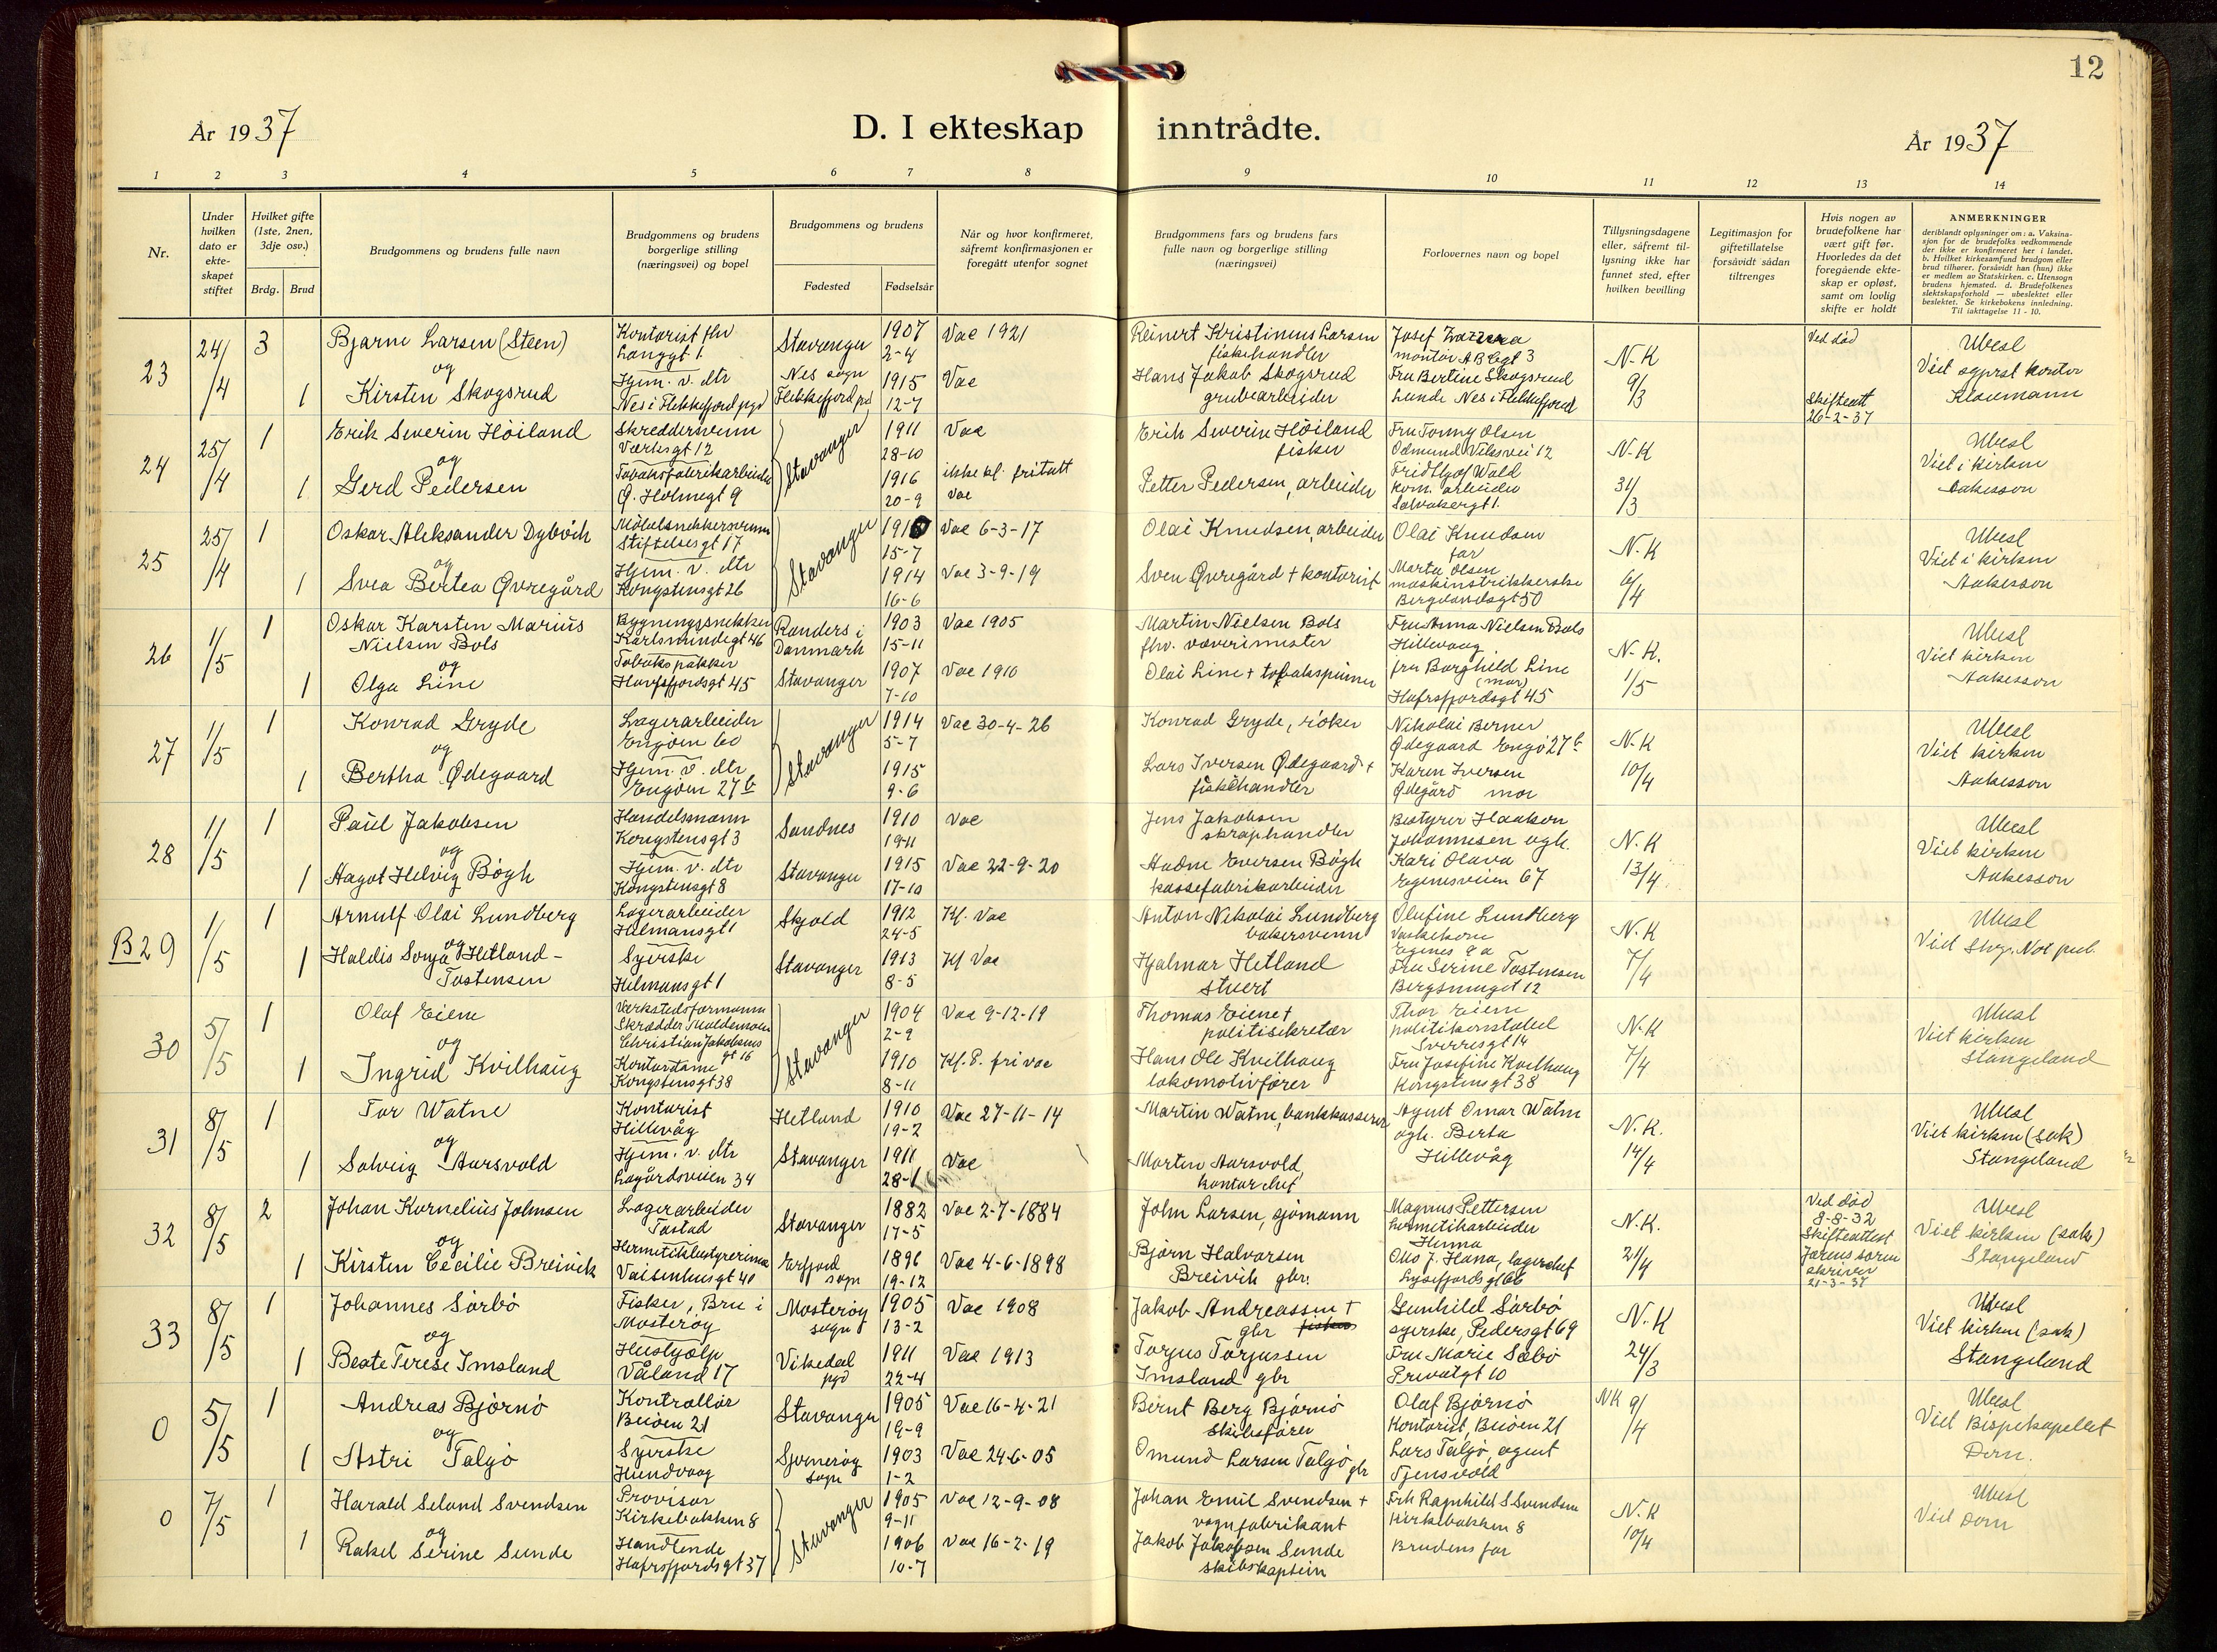 12
År 1937
D. I ekteskap inntrådte.
År 1937
1 2 3 4 5 6 7 8 9 10 11 12 13 14
Nr.
Under hvilken dato er ekte-skapet stiftet
Hvilket gifte (1ste, 2nen, 3dje osv.)
Brdg. Brud
Brudgommens og brudens fulle navn
Brudgommens og brudens borgerlige stilling (næringsvei) og bopel
Brudgommens og brudens
Fødested Fødselsår
Når og hvor konfirmeret, såfremt konfirmasjonen er foregått utenfor sognet
Brudgommens fars og brudens fars fulle navn og borgerlige stilling (næringsvei)
Forlovernes navn og bopel
Tillysningsdagene eller, såfremt til-lysning ikke har funnet sted, efter hvilken bevilling
Legitimasjon for giftetillatelse forsåvidt sådan tiltrenges
Hvis nogen av brudefolkene har vært gift før. Hvorledes da det foregående ekte-skap er opløst, samt om lovlig skifte er holdt
ANMERKNINGER
deriblandt oplysninger om: a. Vaksina-sjon for de brudefolks vedkommende der ikke er konfirmeret her i landet. b. Hvilket kirkesamfund brudgom eller brud tilhører, forsåvidt han (hun) ikke er medlem av Statskirken. c. Utensogn brudens hjemsted. d. Brudefolkenes slektskapsforhold — ubeslektet eller beslektet. Se kirkebokens innledning. Til iakttagelse 11 - 10.
23 24/4 3 Bjarne Larsen (Steen) Kontorist fhv Langgt 1 Stavanger 1907 2-4 Vac 1921 Reinert Kristinius Larsen fiskehandler Josef montør N-K 9/3 Ved død Skifteatt 26-2-37 Ubesl
og
1 Kirsten Skogsrud Hjem. v. dtr Nes i Flekkefjord pgd Nes sogn Flekkefjord pgd 1915 12-7 Vac Hans Jakob Skogsrud grubearbeider Fru Bertine Skogsrud Lunde Nes i Flekkefjord
24 25/4 1 Erik Severin Höiland Skreddersvenn Verksgt 12 Stavanger 1911 28-10 Vac Erik Severin Höiland fisker Fru Tonny Olsen Odmund Viksvei 12 N-K 31/3 Ubesl Viet i kirken Aakesson
og
1 Gerd Pedersen Tobaksfabrikarbeider G. Holmegt 9 1916 20-9 ikke kf. fritatt vac Petter Pedersen, arbeider Fridtjof Wold kom. arbeider
25 25/4 1 Oskar Aleksander Dybvik Möbelsnekkersvenn Stiftelsesgt 17 Stavanger 15-7 Vac 6-3-17 Olai Knudsen, arbeider Olai Knudsen far N-K 6/4 Ubesl Viet i kirken Aakesson
og
1 Svea Bertea Qvregård Hjem. v. dtr Kongstensgt 26 1914 16-6 Vac 3-9-19 Sven Qvregård + kontorist Marta Olsen maskinstrikkerske Bergelandsgt 50
26 1/5 1 Oskar Karsten Marius Nielsen Bols Bygningssnekker Karlsmindegt 46 Randers i Danmark 1903 15-11 Vac 1905 Martin Nielsen Bols fhv. væverimester Fru Anna Nielsen Bols Hillevaag N-K. 1/5 Ubesl Viet kirken Aakesson
og
1 Olga Line Tobakspakker Hafrsfjordsgt 45 Stavanger 1907 7-10 Vac 1910 Olai Line + tobakspinner fru Borghild Line (mor) Hafrsfjordsgt 45
27 1/5 1 Konrad Gryde Lagerarbeider Engöen 60 Stavanger 1914 5-7 Vac 30-4-26 Konrad Gryde, röker Nikolai Berner Ødegaard Engö 27b N-K 10/4 Ubesl Viet kirken Aakesson
og
1 Bertha Ødegaard Hjem. v. dtr Engöen 27b 1915 9-6 Lars Iversen Ødegaard + fiskehandler Karen Iversen Ødegård mor
28 1/5 1 Paul Jakobsen Handelsmann Kongstensgt 3 Sandnes 1910 19-11 Vac Jens Jakobsen skraphandler Bestyrer Haakon Johannesen ogh. N-K 13/4 Ubesl Viet kirken Aakesson
og
1 Aagot Helvig Bögh Hjem. v. dtr Kongstensgt 8 Stavanger 1915 17-10 Vac 22-9-20 Audne Eversen Bögh kassefabrikarbeider Kari Olava Egenesveien 67
B29 1/5 1 Arnulf Olai Lundberg Lagerarbeider Hetmansgt 1 Skjold 1912 24-5 Kf. Vac Anton Nikolai Lundberg bakersvenn Olufine Lundberg Vaskekone Egenes 9 a N-K 7/4 Ubesl Viet Not pub.
og
1 Haldis Sonja Hetland-Tostensen Syerske Hetmansgt 1 Stavanger 1913 8-5 Kf Vac Hjalmar Hetland stuert Fru Serine Tostensen Bergsmuget 12
30 5/5 1 Olaf Eiene Verkstedsformann Skrædder Christian Jakobsens gt 16 Stavanger 1904 2-9 Vac 9-12-19 Thomas Eiene + politisekretær Thor Eiene politikonstabel Sverresgt 14 N-K 7/4 Ubesl Viet kirken Stangeland
og
1 Ingrid Kvilhaug Kontordame Kongstensgt 38 1910 8-11 Kf. P. fri vac Hans Ole Kvilhaug lokomotivfører Fru Josefine Kvilhaug Kongstensgt 38
31 8/5 1 Tor Watne Kontorist Hillevåg Hetland 1910 19-2 Vac 27-11-14 Martin Watne, bankkasserer Agent Omar Watne ogh. Berta Hillevåg N.K. 14/4 Ubesl Viet kirken (sak) Stangeland
og
1 Solveig Aarsvold Hjem. v. dtr Lagårdsveien 34 Stavanger 1911 28-1 Vac Morten Aarsvold, kontorchef
32 8/5 2 Johan Kornelius Johnsen Lagerarbeider Tastad Stavanger 1882 17-5 Vac 2-7-1884 John Larsen, sjömann Magnus Pettersen hermetikarbeider Hinna N.K. 21/4 Ved död 8-8-32 Skifteattest Jærens soren skriver 21-3-37 Ubesl Viet kirken (sak) Stangeland
og
1 Kirsten Cecilie Breivik Hermetikbestyrerinne Vaisenhusgt 40 Erfjord sogn 1896 19-12 Vac 4-6-1898 Björn Halvorsen Breivik gbr. Otto J. Hana, lagerchef Lysefjordsgt 66
33 8/5 1 Johannes Sörbö Fisker, Bru i Mosteröy Mosteröy sogn 1905 13-2 Vac 1908 Jakob Andreassen + gbr fisker Gunhild Sörbö syerske, Pedersgt 69 N-K 24/3 Ubesl Viet kirken (sak) Stangeland
og
1 Beate Terese Imsland Hushjælp Våland 17 Vikedal pgd 1911 22-4 Vac 1913 Torjus Torjussen Imsland gbr Fru Marie Sæbö Privatgt 10
0 5/5 1 Andreas Björnö Kontrollör Buöen 21 Stavanger 1905 19-9 Vac 16-4-21 Bernt Berg Björnö Skibsförer Olaf Björnö Kontorist, Buöen 21 NK 9/4 Ubesl Viet Bispekapellet Dom.
og
1 Astri Talgö Syerske Hundvaag Sjerneröy sogn 1903 1-2 Vac 24-6-05 Omund Larsen Talgö gbr Lars Talgö, agent Tjensvold
0 7/5 1 Harald Seland Svendsen Provisor Kirkebakken 8 Stavanger 1905 9-11 Vac 12-9-08 Johan Emil Svendsen + vognfabrikant Frk Ragnhild S Svendsen Kirkebakken 8 N.K 10/4 Ubesl Viet Dom
og
1 Rakel Serine Sunde Handlende Hafrsfjordsgt 37 1906 10-7 Vac 16-2-19 Jakob Jakobsen Sunde skibskaptein Brudens far